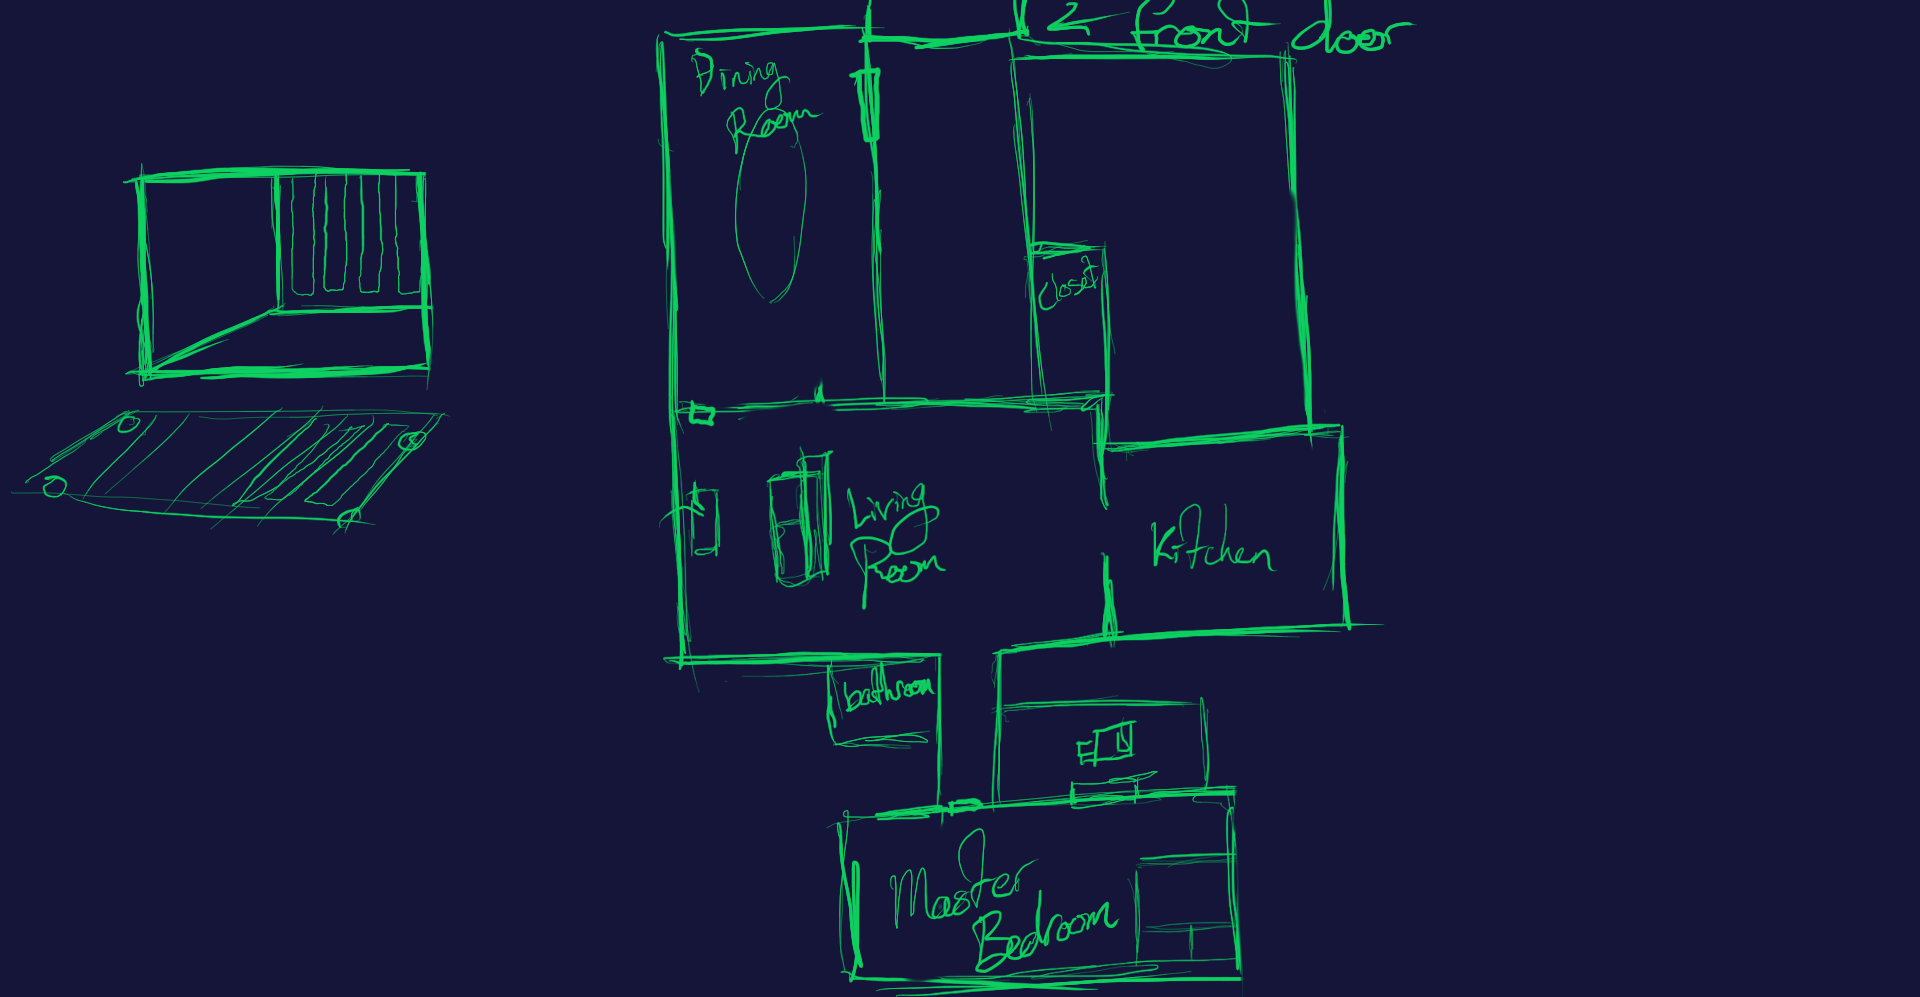 2 front door
Dining
Room
closet
Living
Room
Kitchen
bathroom
Master
Bedroom